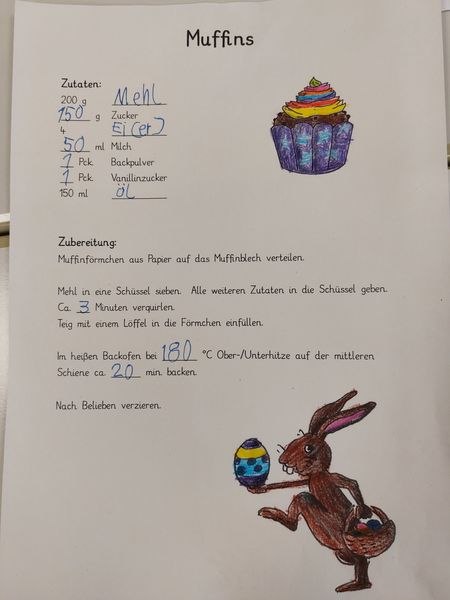 Muffins
Zutaten:
200 g Mehl
150 g Zucker
4 Ei(er)
50 ml Milch
1 Pck. Backpulver
1 Pck. Vanillinzucker
150 ml öl
Zubereitung:
Muffinförmchen aus Papier auf das Muffinblech verteilen.
Mehl in eine Schüssel sieben. Alle weiteren Zutaten in die Schüssel geben.
Ca. 3 Minuten verquirlen.
Teig mit einem Löffel in die Förmchen einfüllen.
Im heißen Backofen bei 180 °C Ober-/Unterhitze auf der mittleren
Schiene ca. 20 min. backen.
Nach Belieben verzieren.